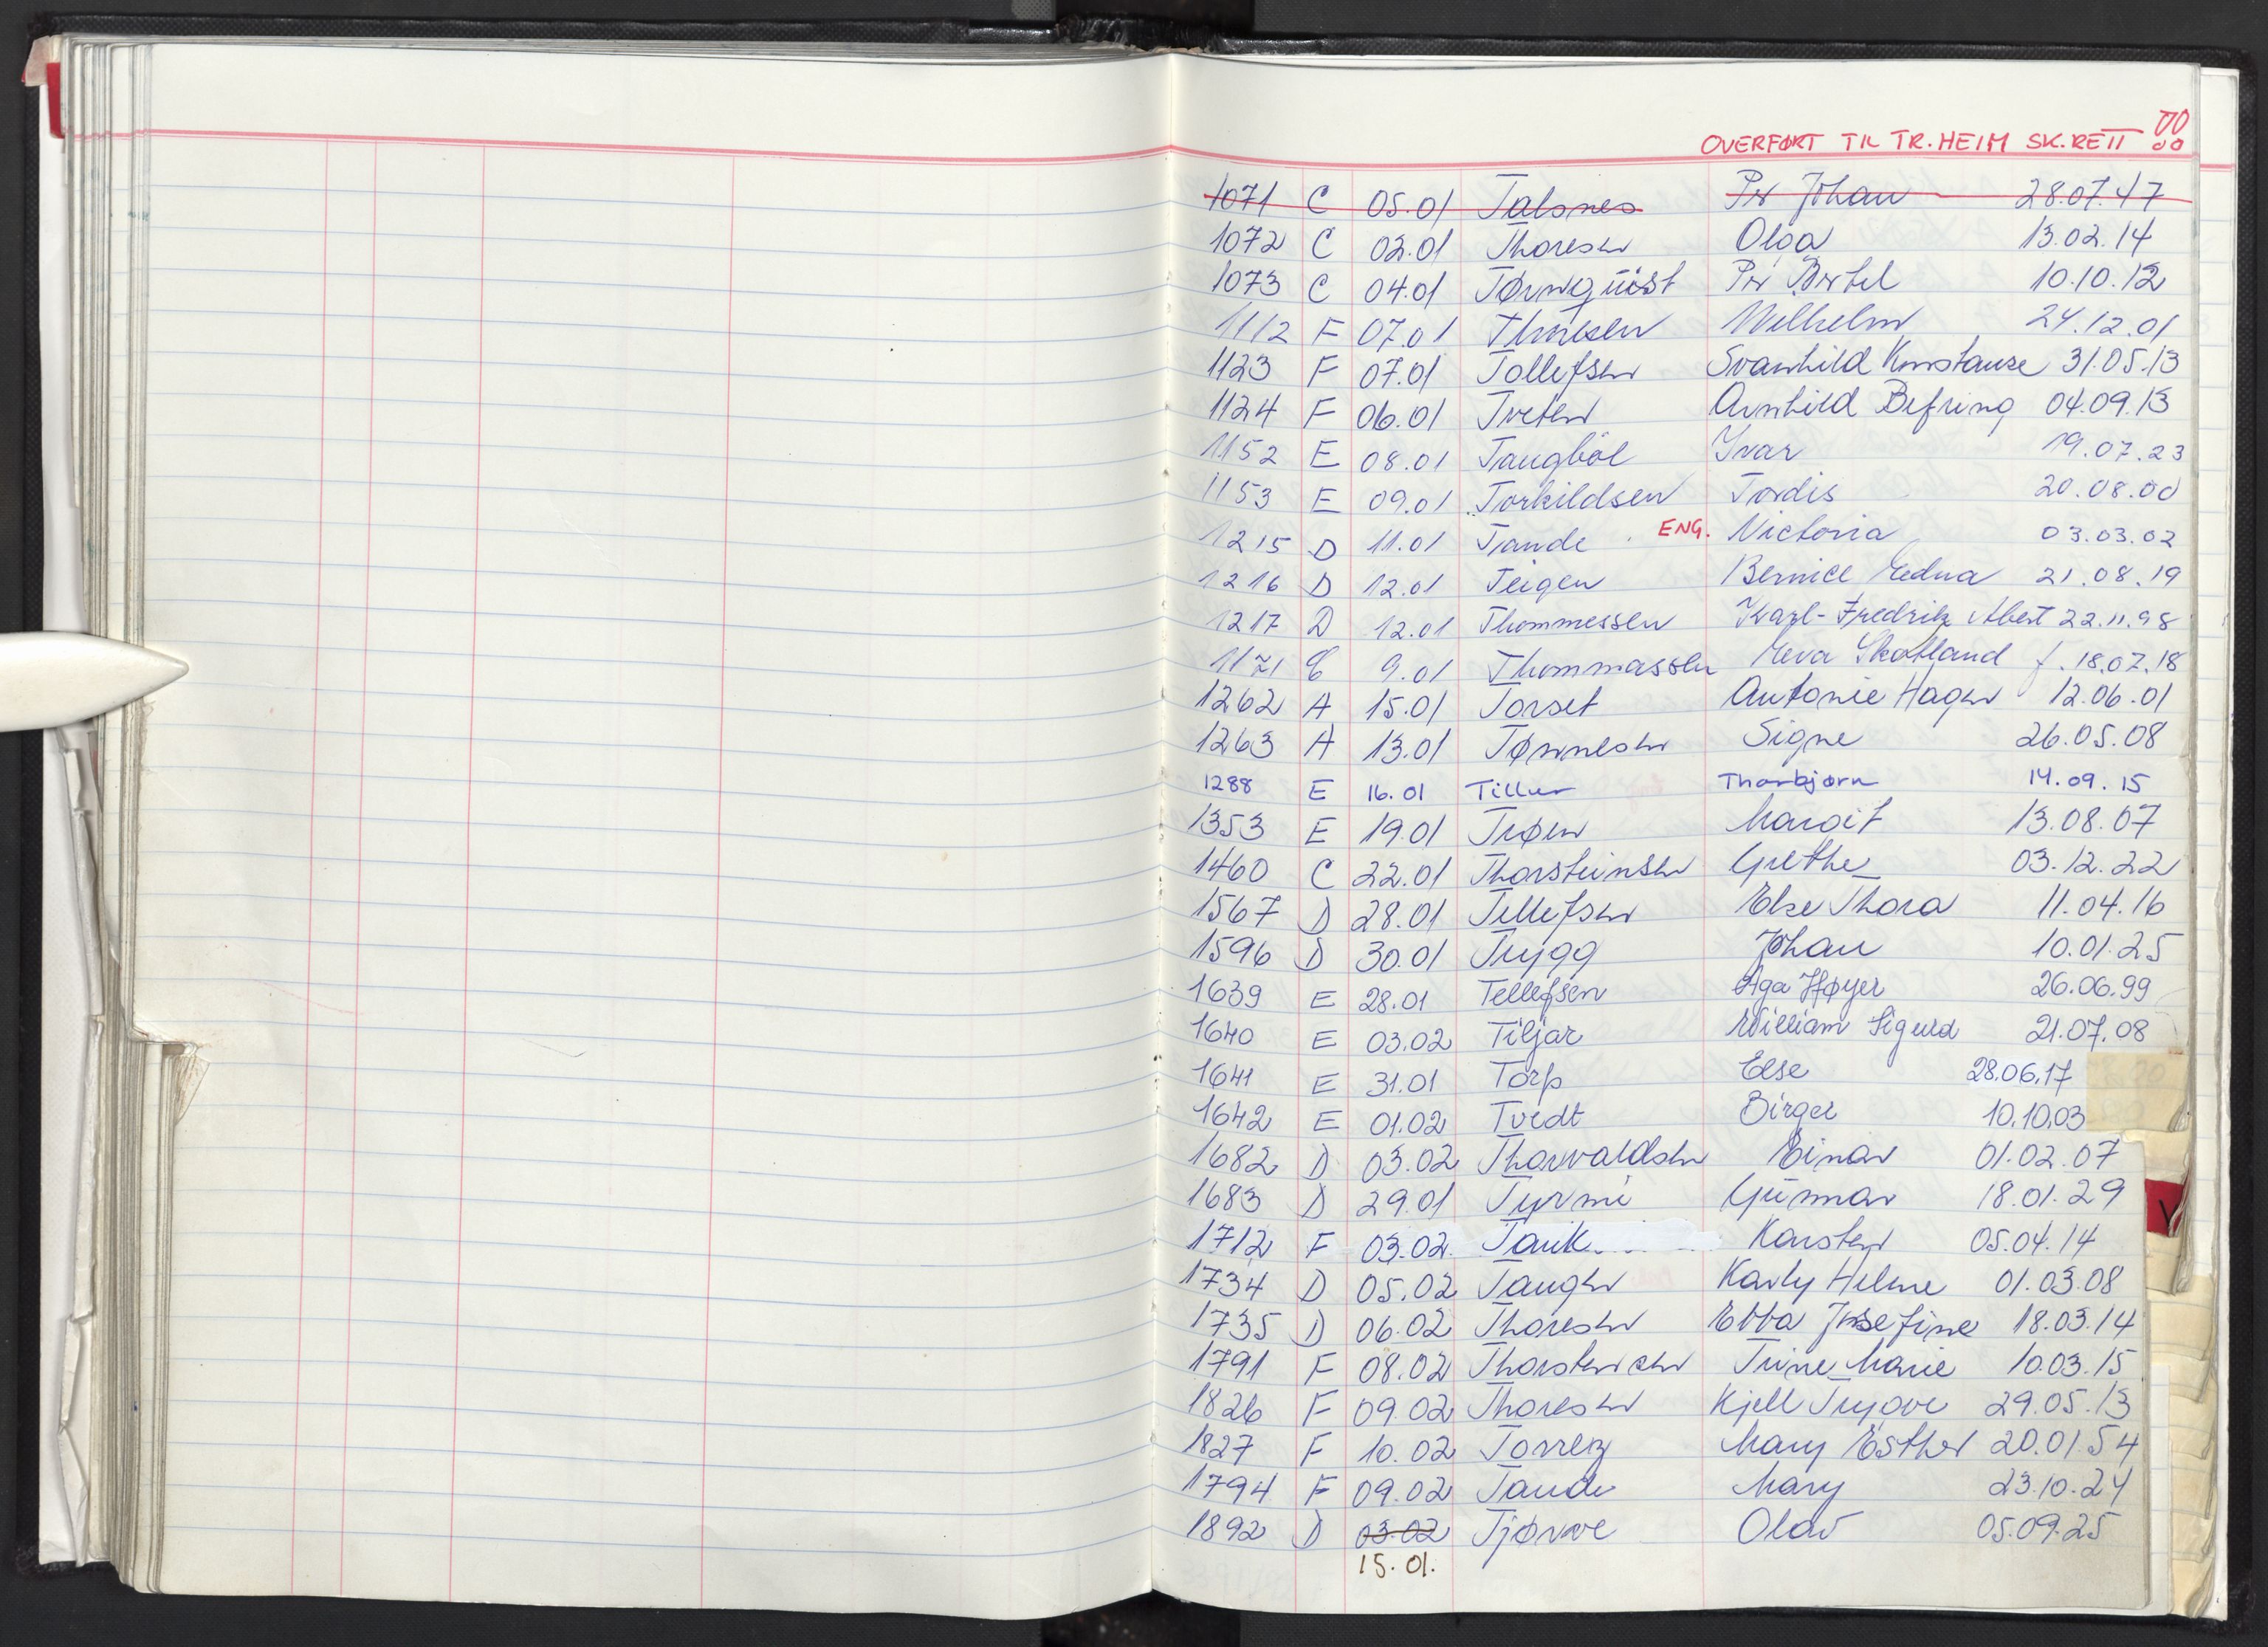 OVERFØRT TIL TR.HEIM SK.RETT !!
1071 C 05.01 Talsnes Per Johan 28.07.47
1072 C 02.01 Thoresen Olga 13.02.14
1073 C 04.01 Tørnquist Per Bertel 10.10.12
1112 F 07.01 Wilhelm 24.12.01
1123 F 07.01 Tollefsen Svanhild Konstanse 31.05.13
1124 F 06.01 Tveten Arnhild Befring 04.09.13
1152 E 08.01 Taugbøl Ivar 19.07.23
1153 E 09.01 Torkildsen Tordis 20.08.00
1215 D 11.01 Tande ENG. Victoria 03.03.02
1216 D 12.01 Teigen Bernice Edna 21.08.19
1217 D 12.01 Thommessen Karl-Fredrik Albert 22.11.98
1171 C 9.01 Thommassen Eva Skotland f. 18.07.18
1262 A 15.01 Torset Antonie Hagen 12.06.01
1263 A 13.01 Tønnesen Signe 26.05.08
1288 E 16.01 Tiller Thorbjørn 14.09.15
1353 E 19.01 Trøen Margit 13.08.07
1460 C 22.01 Thorsteinsen Grethe 03.12.22
1567 D 28.01 Tellefsen Else Thora 11.04.16
1596 D 30.01 Trygg Johan 10.01.25
1639 E 28.01 Tellefsen Aga Høyer 26.06.99
1640 E 03.02 Tiljar William Sigurd 21.07.08
1641 E 31.01 Torp Else 28.06.17
1642 E 01.02 Tvedt Birger 10.10.03
1682 D 03.02 Thorvaldsen Einar 01.02.07
1683 D 29.01 Tyrmi Gunnar 18.01.29
1712 F 03.02 Tank Karsten 05.04.14
1734 D 05.02 Tangen Karly Helene 01.03.08
1735 D 06.02 Thoresen Ebba Josefine 18.03.14
1791 F 08.02 Thorstensen Trine Marie 10.03.15
1826 F 09.02 Thoresen Kjell Trygve 29.05.13
1827 F 10.02 Torrez Mary Esther 20.01.54
1794 F 09.02 Tande Mary 23.10.24
1892 D 03.02 Tjørve Olav 05.09.25
15.01.
V